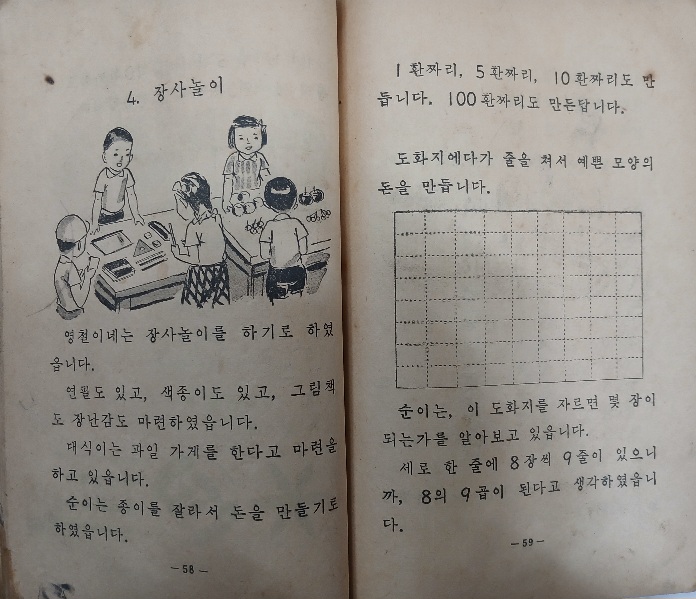 4. 장사놀이
영천이네는 장사놀이를 하기로 하였
읍니다.
연필도 있고, 색종이도 있고, 그림책
도 장난감도 마련하였읍니다.
대식이는 과일 가게를 한다고 마련을
하고 있읍니다.
순이는 종이를 잘라서 돈을 만들기로
하였읍니다.
－58－
1환짜리, 5환짜리, 10환짜리도 만
듭니다. 100환짜리도 만든답니다.
도화지에다가 줄을 쳐서 예쁜 모양의
돈을 만듭니다.
순이는, 이 도화지를 자르면 몇 장이
되는가를 알아보고 있읍니다.
세로 한 줄에 8장씩 9줄이 있으니
까, 8의 9곱이 된다고 생각하였읍니
다.
－59－